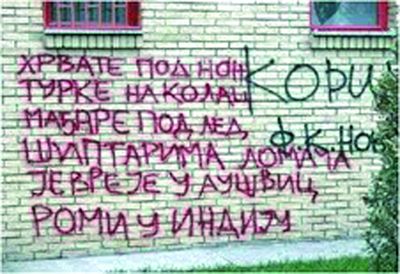 ХРВАТЕ ПОД НОЖ
ТУРКЕ НА КОЛАЦ
МАЂАРЕ ПОД ЛЕД,
ШИПТАРИМА ЛОМАЧА
ЈЕВРЕЈЕ У АУШВИЦ,
РОМИ У ИНДИЈУ
КОРИ
Ф.К.НОВ